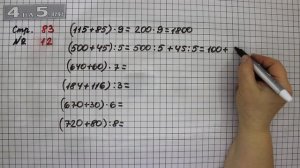 4 pa 5
Стр. 83
№ 12
(115+85)·9=200·9=1800
(500+45):5=500:5+45:5=100+
(640+60):7=
(184+116):3=
(670+30)·6=
(720+80):8=